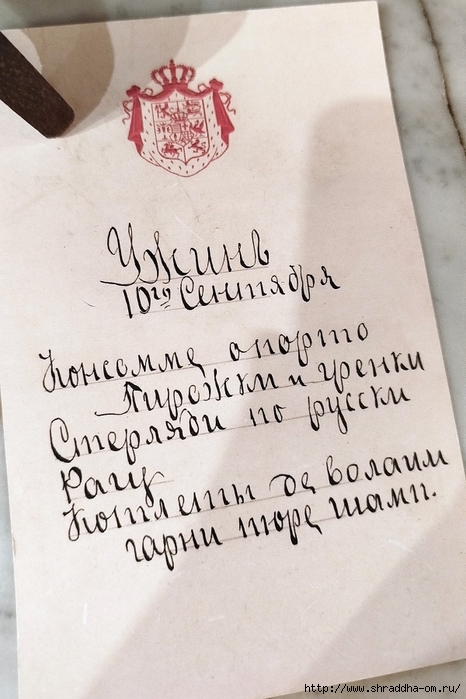 Ужинъ
10го Сентября
Консомме апорто
Пирожки и гренки
Стерляди по русски
Рагу
Котлеты де волаим
гарни пюре шамп.
http://www.shraddha-om.ru/